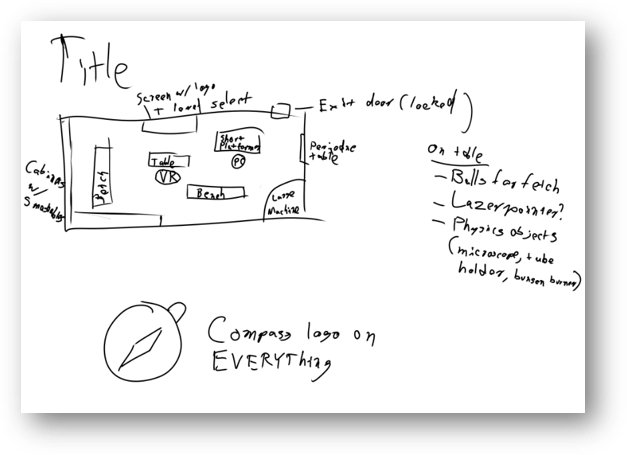 Title
Screen w/ logo
+ level select
Exit door (locked)
Short
Platformer
PC
Periodic
table
Table
VR
Bench
Large
Machine
Cabinets
w/
On table
- Balls for fetch
- Lazer pointer?
- Physics objects
(microscope, tube
holder, bunsen burner)
Compass logo on
EVERYThing